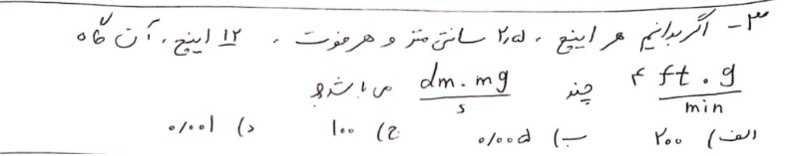 ۳- اگر بدانیم هر اینچ ، ۲٫۵ سانتی متر و هر فوت ، ۱۲ اینچ ، آن گاه
۴ ft . g / min چند dm . mg / s می باشد؟
الف) ۲۰۰ ب) ۰/۰۰۵ ج) ۱۰۰ د) ۰/۰۰۱